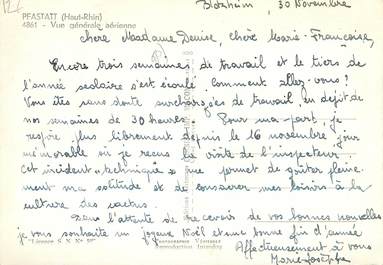 PFASTATT (Haut-Rhin)
4861 - Vue générale aérienne
Blotzheim, 30 Novembre
Chère Madame Denise, chère Marie-Françoise,
Encore trois semaines de travail et le tiers de
l'année scolaire s'est écoulé. Comment allez-vous?
Vous êtes sans doute surchargées de travail, en dépit de
nos semaines de 30 heures. Pour ma part, je
respire plus librement depuis le 16 novembre, jour
mémorable où je reçus la visite de l'inspecteur.
Cet incident "technique" me permet de goûter pleine-
ment ma solitude et de consacrer mes loisirs à la
culture des cactus.
Dans l'attente de recevoir de vos bonnes nouvelles
je vous souhaite un joyeux Noël et une bonne fin d'année
Affectueusement à vous
Marie-Josèphe
"Licence S.N.
PHOTOGRAPHIE VÉRITABLE
Reproduction Interdite